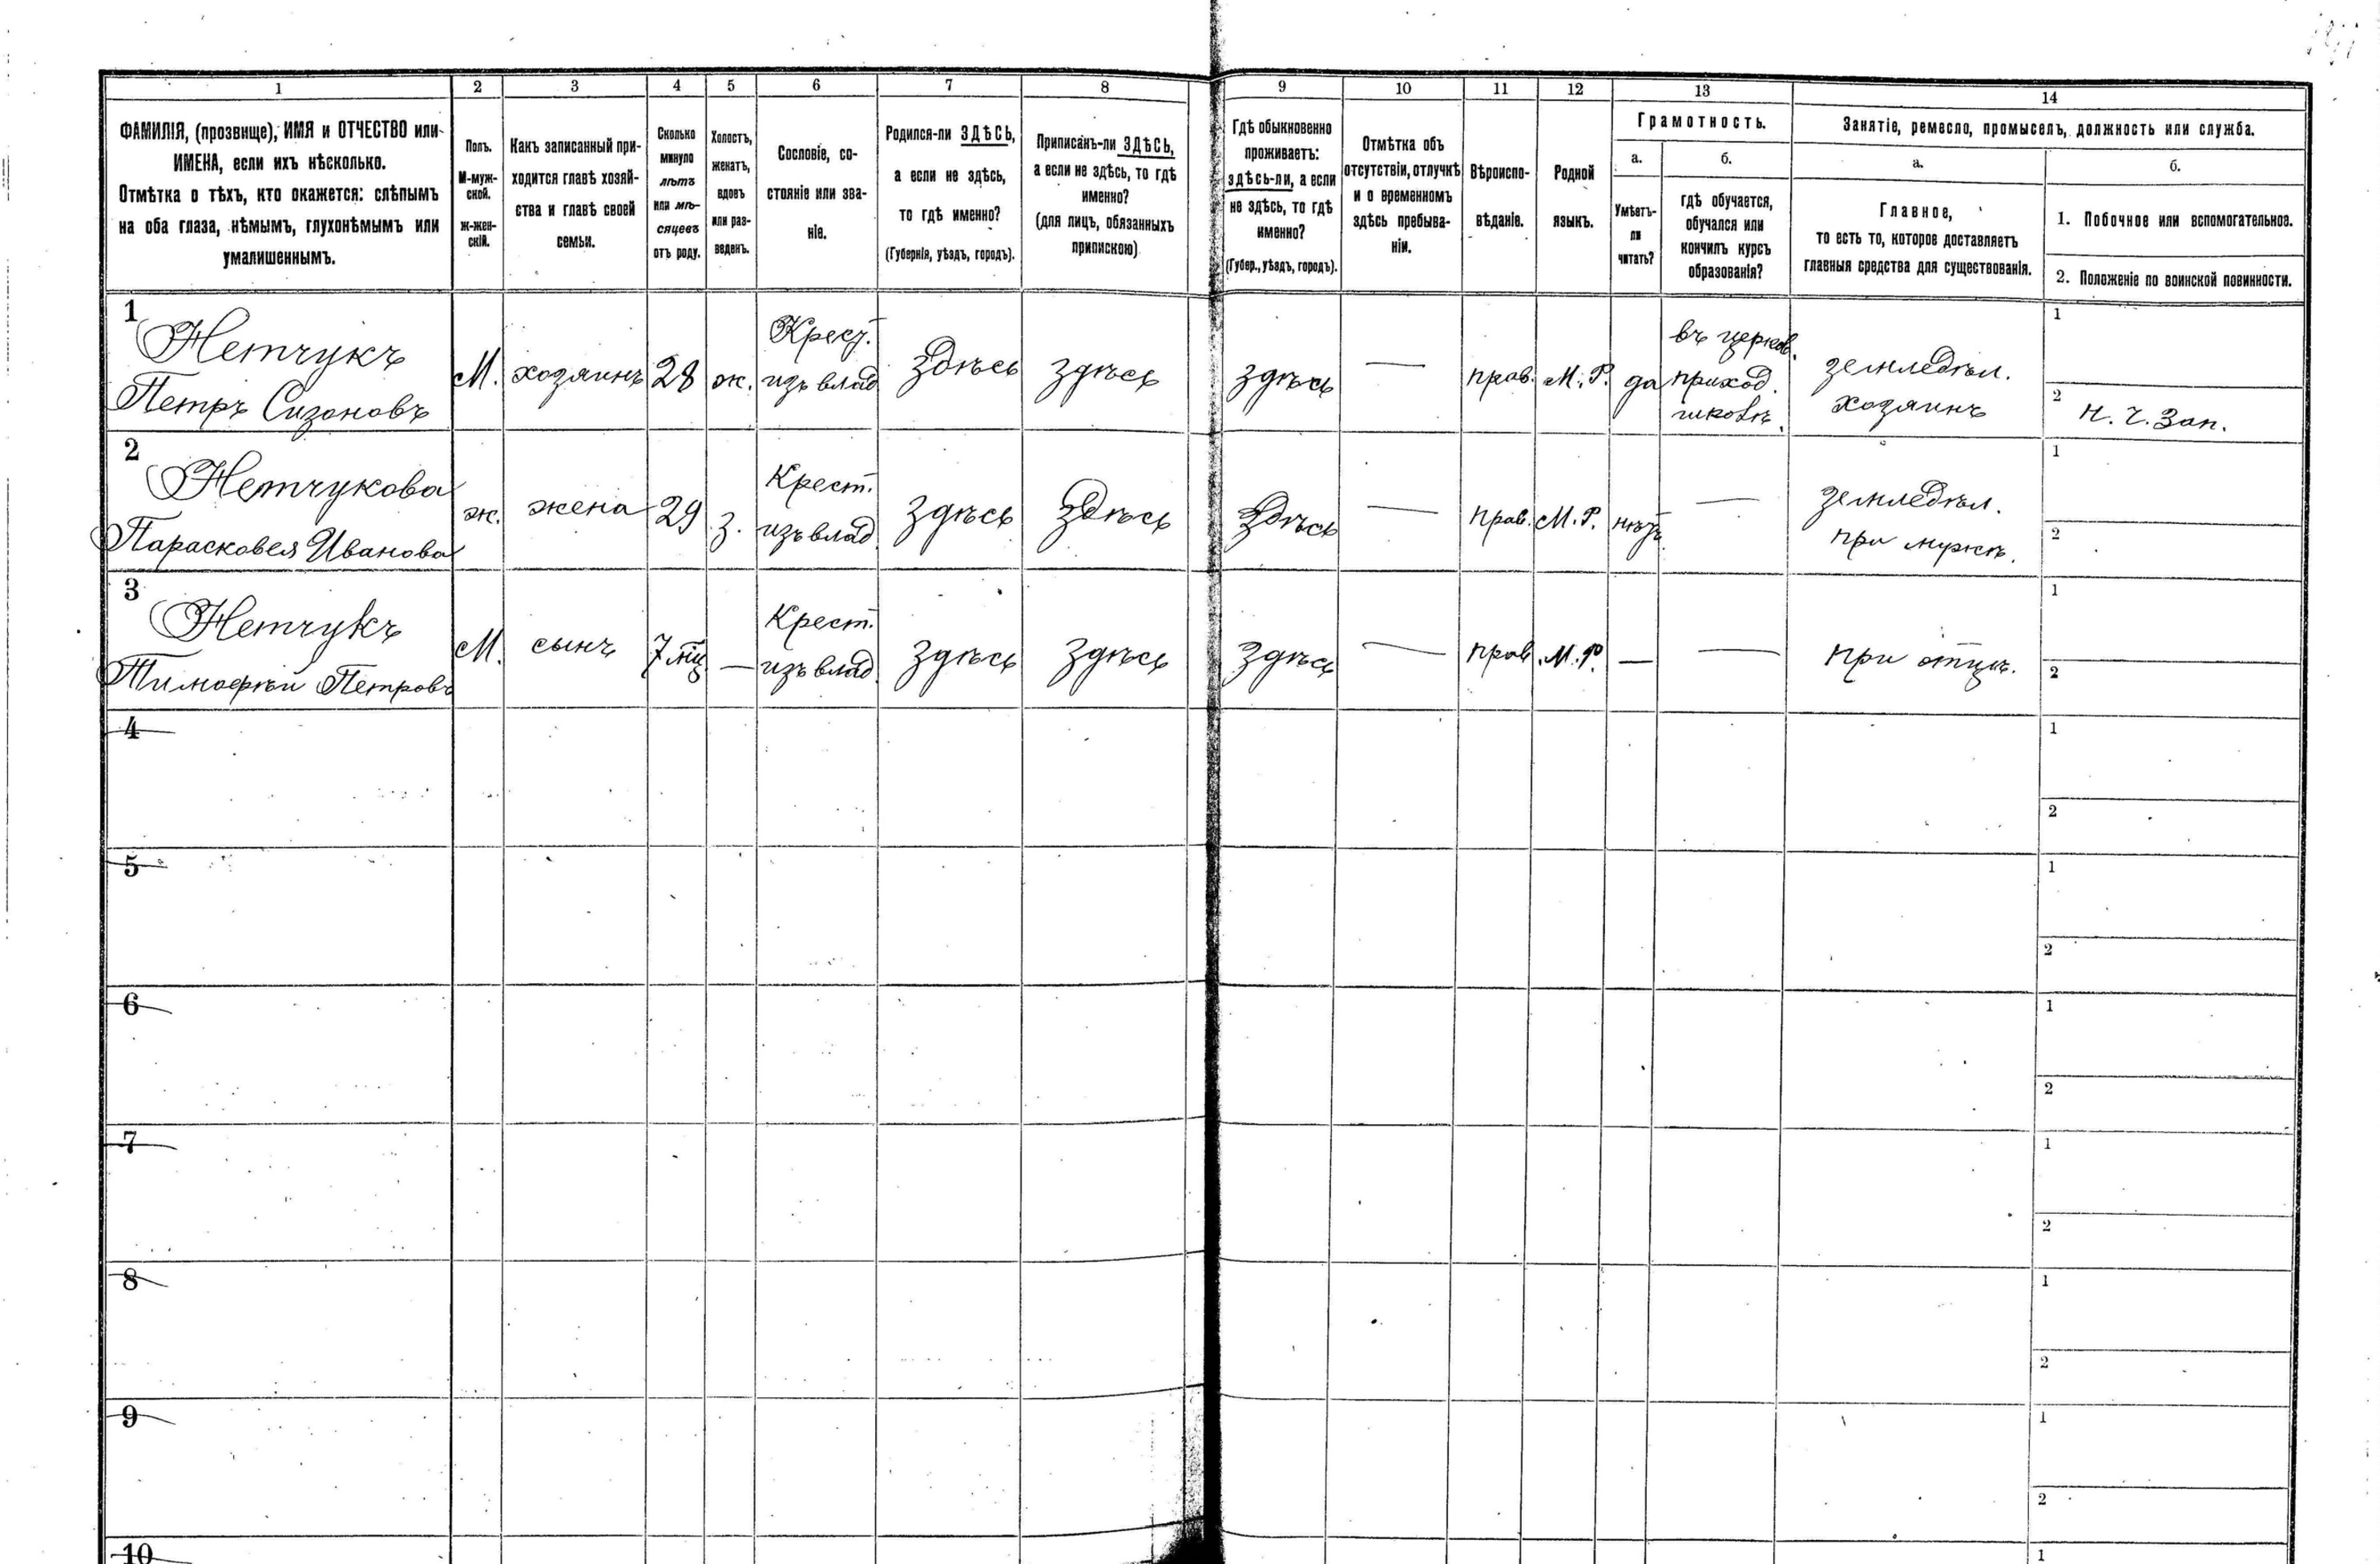 1 2 3 4 5 6 7 8 9 10 11 12 13 14
ФАМИЛІЯ, (прозвище), ИМЯ и ОТЧЕСТВО или
ИМЕНА, если ихъ нѣсколько.
Отмѣтка о тѣхъ, кто окажется: слѣпымъ
на оба глаза, нѣмымъ, глухонѣмымъ или
умалишеннымъ.
Полъ.
М-муж-
ской.
ж-жен-
скій.
Какъ записанный при-
ходится главѣ хозяй-
ства и главѣ своей
семьи.
Сколько
минуло
лѣтъ
или мѣ-
сяцевъ
отъ роду.
Холостъ,
женатъ,
вдовъ
или раз-
веденъ.
Сословіе, со-
стояніе или зва-
ніе.
Родился-ли ЗДѢСЬ,
а если не здѣсь,
то гдѣ именно?
(Губернія, уѣздъ, городъ).
Приписанъ-ли ЗДѢСЬ,
а если не здѣсь, то гдѣ
именно?
(для лицъ, обязанныхъ
припискою)
Гдѣ обыкновенно
проживаетъ:
здѣсь-ли, а если
не здѣсь, то гдѣ
именно?
(Губер., уѣздъ, городъ).
Отмѣтка объ
отсутствіи, отлучкѣ
и о временномъ
здѣсь пребыва-
ніи.
Вѣроиспо-
вѣданіе.
Родной
языкъ.
Грамотность.
а.
Умѣетъ-
ли
читать?
б.
гдѣ обучается,
обучался или
кончилъ курсъ
образованія?
Занятіе, ремесло, промыселъ, должность или служба.
а.
Главное,
то есть то, которое доставляетъ
главныя средства для существованія.
б.
1. Побочное или вспомогательное.
2. Положеніе по воинской повинности.
1
Нетчукъ
Петръ Сизоновъ
М.
хозяинъ
28
ж.
Крест.
изъ влад
здѣсь
здѣсь
здѣсь
—
прав.
М. Р.
да
въ церков.
приход.
школѣ.
земледѣл.
хозяинъ
1
2
Н. Ч. Зап.
2
Нетчукова
Парасковея Иванова
ж.
жена
29
з.
Крест.
изъ влад
здѣсь
здѣсь
здѣсь
—
прав.
М. Р.
нѣтъ
—
земледѣл.
при мужѣ.
1
2
3
Нетчукъ
Тимофѣй Петровъ
М.
сынъ
7 мц
—
Крест.
изъ влад
здѣсь
здѣсь
здѣсь
—
прав.
М. Р.
—
—
при отцѣ.
1
2
4
1
2
5
1
2
6
1
2
7
1
2
8
1
2
9
1
2
10
1